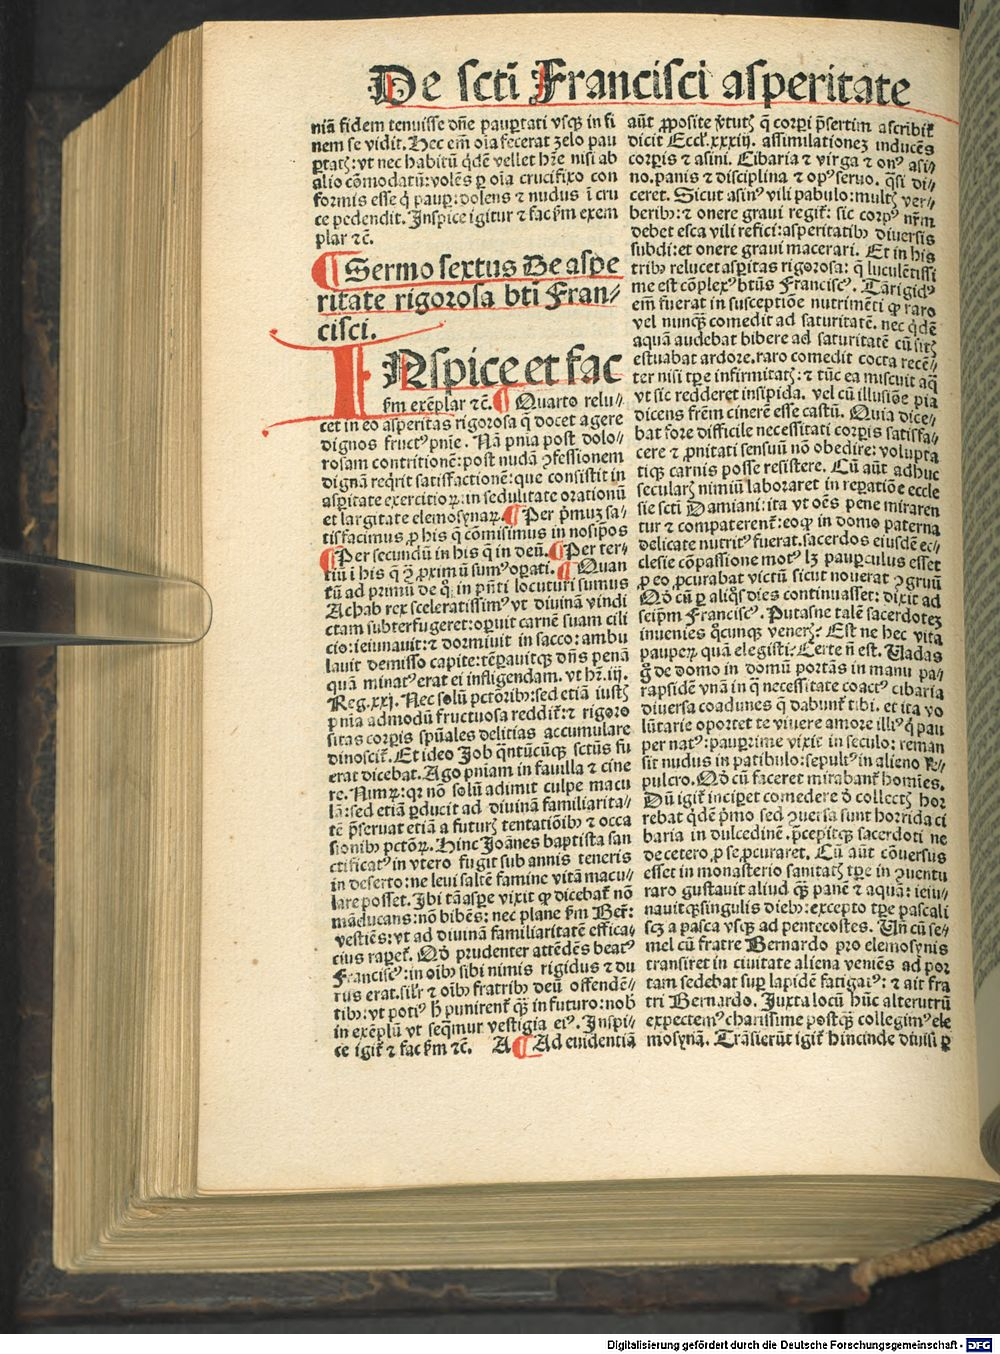 De scti Francisci asperitate
niā fidem tenuisse dn̄e paup̄tati vsq̄ in fi
nem se vidit. Hec em̄ oīa fecerat zelo pau
p̄tatꝭ: vt nec habitū qd̄e vellet hr̄e nisi ab
alio cōmodatū: volēs ꝑ oīa crucifixo con
formis esse q̄ paup: dolens ⁊ nudus ī cru
ce pēdendit. Inspice igitur ⁊ fac fm̄ exem
plar ⁊c̄.
¶ Sermo sextus De aspe
ritate rigorosa bt̄i Fran⸗
cisci.
INspice et fac
fm̄ exēplar ⁊c̄. ¶ Quarto relu⸗
cet in eo asperitas rigorosa q̄ docet agere
dignos fructꝰ pn̄ie. Nā pn̄ia post dolo⸗
rosam contritionē: post nudā ꝯfessionem
dignā reqrit satisfactionē: que consistit in
asp̄itate exercitioꝝ: in sedulitate orationū
et largitate elemosynaꝝ. ¶ Per p̄muꝫ sa⸗
tisfacimus ꝓ his q̄ cōmisimus in nosip̄os
¶ Per secundū in his q̄ in deū. ¶ Per ter⸗
tiū ī his q̄ ī ꝓximū sumꝰ oꝑati. ¶ Quan
tū ad primū de q̄ in pn̄ti locuturi sumus
Achab rex sceleratissimꝰ vt diuinā vindi
ctam subterfugeret: oꝑuit carnē suam cili
cio: ieiunauit: ⁊ dormiuit in sacco: ambu
lauit demisso capite: tēꝑauitqꝫ dn̄s penā
quā minatꝰ erat ei infligendam. vt hr̄. iij.
Reg. xxj. Nec solū pctōribꝰ: sed etiā iustꝭ
pn̄ia admodū fructuosa reddit̄: ⁊ rigoro
sitas corꝑis spūales delitias accumulare
dinoscit̄. Et ideo Job qn̄tūcūqꝫ sctūs fu
erat dicebat. Ago pniam in fauilla ⁊ cine
re. Nimꝝ: qꝛ nō solū adimit culpe macu
lā: sed etiā ꝑducit ad diuinā familiarita⸗
tē p̄seruat etiā a futurꝭ tentatiōibꝰ ⁊ occa
sionibꝰ pctōꝝ. Hinc Joānes baptista san
ctificatꝰ in vtero fugit sub annis teneris
in deserto: ne leui saltē famine vitā macu⸗
lare posset. Ibi tā aspe vixit ꝙ dicebat̄ nō
māducans: nō bibēs: nec plane fm̄ Ber̄:
vestiēs: vt ad diuinā familiaritatē effica⸗
cius raꝑet̄. Qd̄ prudenter attēdēs beatꝰ
Franciscꝰ: in oībꝰ sibi nimis rigidus ⁊ du
rus erat. silr̄ ⁊ oībꝰ fratribꝰ deū offendē⸗
tibꝰ: vt potiꝰ h̄ punirent̄ qꝫ in futuro: nob̄
in exēplū vt seq̄mur vestigia eiꝰ. Inspi⸗
ce igit̄ ⁊ fac fm̄ ⁊c̄. A ¶ Ad euidentiā
aūt ꝓposite v̄tutꝭ q̄ corpi p̄sertim ascribit̄
dicit Eccl. xxxiij. assimilationeꝫ inducēs
corꝑis ⁊ asini. Cibaria ⁊ virga ⁊ onꝰ asi⸗
no. panis ⁊ disciplina ⁊ opꝰ seruo. qͣsi di⸗
ceret. Sicut asinꝰ vili pabulo: multꝭ ver⸗
beribꝰ: ⁊ onere graui regit̄: sic corpꝰ nr̄m
debet esca vili refici: asperitatibꝰ diuersis
subdi: et onere graui macerari. Et in his
tribꝰ relucet aspitas rigorosa: q̄ luculētissi
me est cōplexꝰ btūs Franciscꝰ. Tā rigidꝰ
em̄ fuerat in susceptiōe nutrimēti ꝙ raro
vel nunqꝫ comedit ad saturitatē. nec qd̄ē
aquā audebat bibere ad saturitatē cū sitꝭ
estuabat ardore. raro comedit cocta recē⸗
ter nisi tꝑe infirmitatꝭ: ⁊ tūc ea miscuit aq̄
vt sic redderet insipida. vel cū illusiōe pia
dicens frēm cinerē esse castū. Quia dice⸗
bat fore difficile necessitati corꝑis satisfa⸗
cere ⁊ ꝓnitati sensuū nō obedire: volupta
tiqꝫ carnis posse resistere. Cū aūt adhuc
secularꝭ nimiū laboraret in reꝑatiōe eccle
sie scti Damiani: ita vt oēs pene miraren
tur ⁊ compaterent̄: eo ꝙ in domo paterna
delicate nutritꝰ fuerat. sacerdos eiusdē ec⸗
clesie cōpassione motꝰ lꝫ paupculus esset
ꝓ eo ꝓcurabat victū sicut nouerat ꝯgruū
Qd̄ cū ꝑ aliqͣs dies continuasset: dixit ad
seipm̄ Franciscꝰ. Putasne talē sacerdoteꝫ
inuenies q̄cunqꝫ venerꝭ? Est ne hec vita
paupeꝝ quā elegisti? Certe n̄ est. Vadas
g̊ de domo in domū portās in manu pa⸗
rapsidē vnā in q̄ necessitate coactꝰ cibaria
diuersa coadunes q̄ dabunt̄ tibi. et ita vo
lūtarie oportet te viuere amore illiꝰ q̄ pau
per natꝰ: pauprime vixit in seculo: reman
sit nudus in patibulo: sepultꝰ in alieno se⸗
pulcro. Qd̄ cū faceret mirabant̄ homīes.
Dū igit̄ incipet comedere d̄ collectꝭ hor
rebat qd̄e p̄mo sed ꝯuersa sunt horrida ci
baria in dulcedinē. p̄cepitqꝫ sacerdoti ne
de cetero ꝓ se ꝓcuraret. Cū aūt cōuersus
esset in monasterio sanitatꝭ tꝑe in ꝯuentu
raro gustauit aliud qꝫ panē ⁊ aquā: ieiu⸗
nauitqꝫ singulis diebꝰ: excepto tꝑe pascali
scꝫ a pasca vsqꝫ ad pentecostes. Vn̄ cū se⸗
mel cū fratre Bernardo pro elemosynis
transiret in ciuitate aliena veniēs ad por
tam sedebat sup lapidē fatigatꝰ: ⁊ ait fra
tri Bernardo. Juxta locū hūc alterutrū
expectemꝰ charissime postqꝫ collegimꝰ ele
mosynā. Trāsierūt igit̄ hincinde diuisi ꝑ
Digitalisierung gefördert durch die Deutsche Forschungsgemeinschaft - DFG